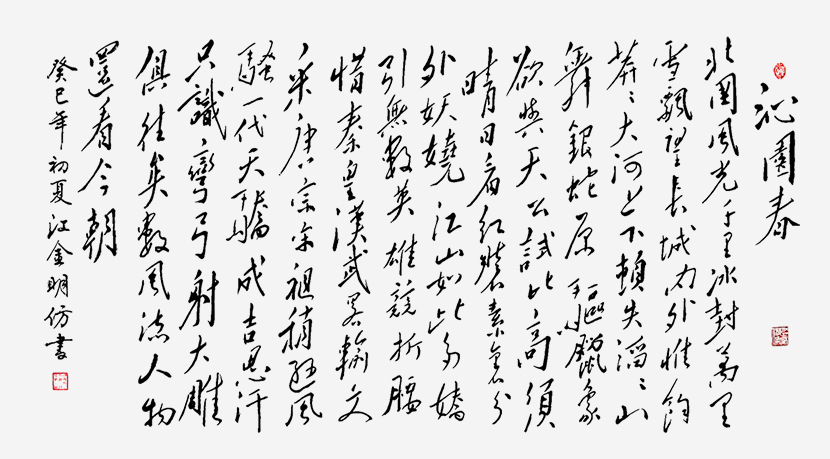 沁園春
北國風光千里冰封萬里
雪飄望長城內外惟餘
莽〻大河上下頓失滔〻山
舞銀蛇原驅臘象
欲與天公試比高須
晴日看紅裝素裹分
外妖嬈江山如此多嬌
引無數英雄競折腰
惜秦皇漢武略輸文
采唐宗宋祖稍遜風
騷一代天驕成吉思汗
只識彎弓射大雕
俱往矣數風流人物
還看今朝
癸巳年初夏江金明仿書